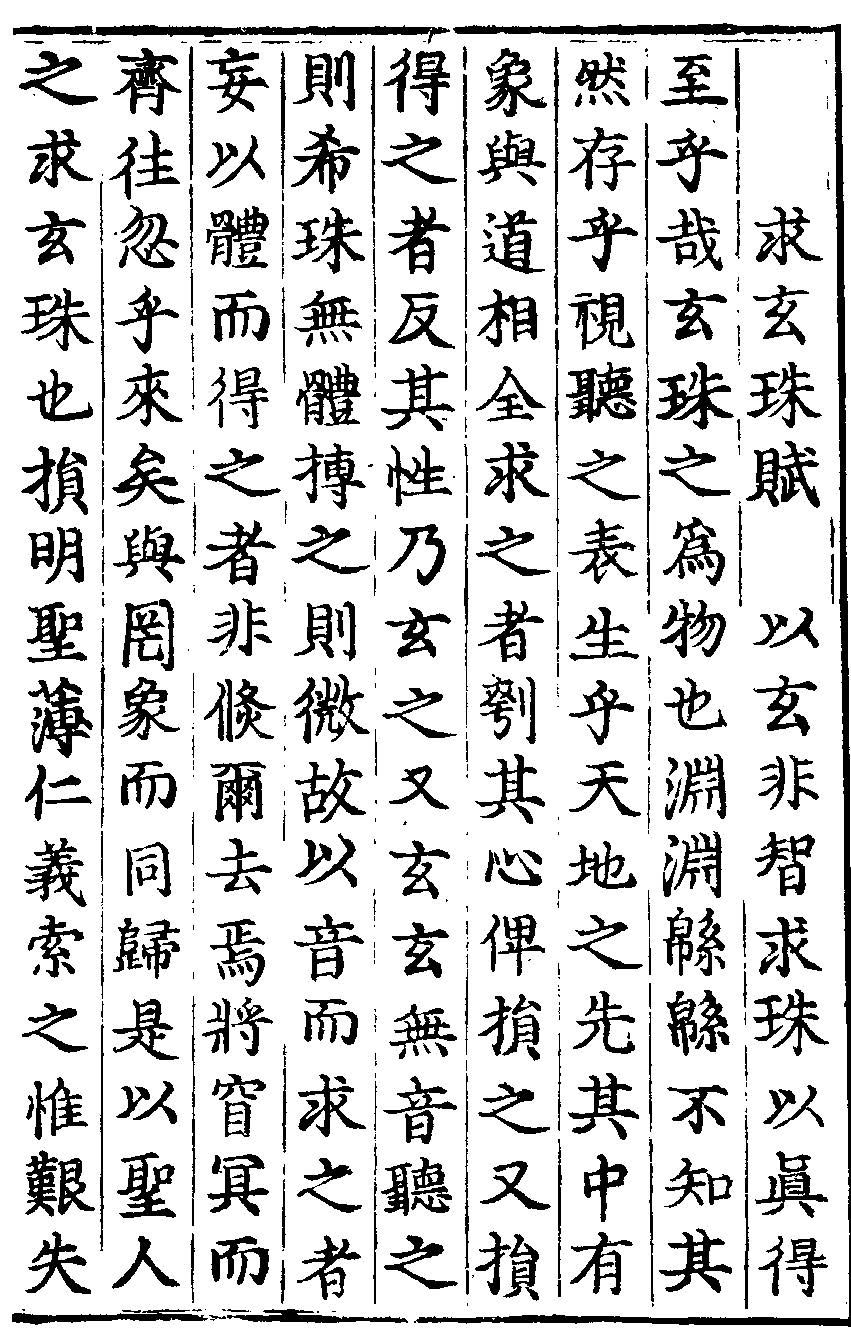 求玄珠賦 以玄非智求珠以眞得
至乎哉玄珠之爲物也淵淵緜緜不知其
然存乎視聽之表生乎天地之先其中有
象與道相全求之者刳其心俾損之又損
得之者反其性乃玄之又玄玄無音聽之
則希珠無體摶之則微故以音而求之者
妄以體而得之者非倐爾去焉將窅冥而
齊往忽乎來矣與罔象而同歸是以聖人
之求玄珠也損明聖薄仁義索之惟艱失